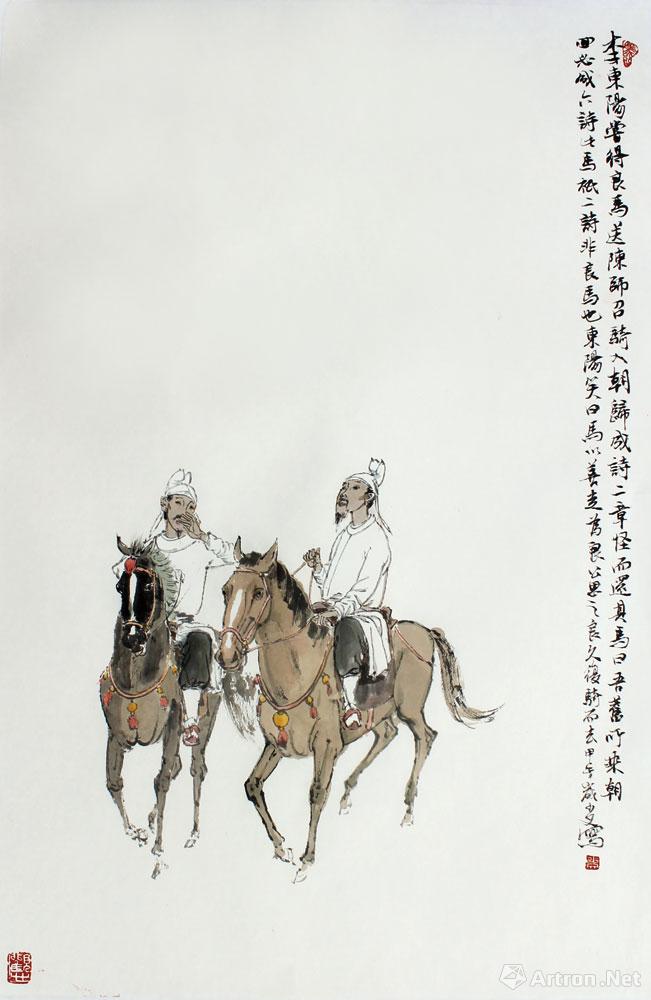 李東陽嘗得良馬送陳師召騎入朝歸成詩二章怪而還其馬曰吾舊所乘朝
回必成六詩此馬祇二詩非良馬也東陽笑曰馬以善走為良公思之良久復騎而去甲午歲文寫
Artron.Net